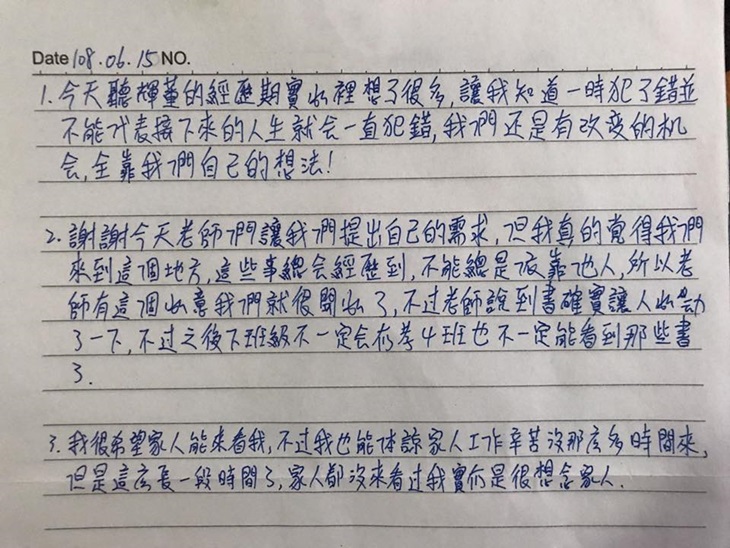 Date 108.06.15 NO.
1. 今天聽輝董的經歷期實心裡想了很多,讓我知道一時犯了錯並
不能代表接下來的人生就会一直犯錯,我們还是有改变的机
会,全靠我們自己的想法!
2. 謝謝今天老師們讓我們提出自己的需求,但我真的覚得我們
來到這個地方,這些事總会經歷到,不能總是依靠他人,所以老
師有這個心意我們就很開心了,不过老師說到書確實讓人心動
了一下,不过之後下班級不一定会在孝4班也不一定能看到那些書
了.
3. 我很希望家人能來看我,不过我也能体諒家人工作辛苦沒那庅多時間來,
但是這庅長一段時間了,家人都沒來看过我實在是很想念家人.